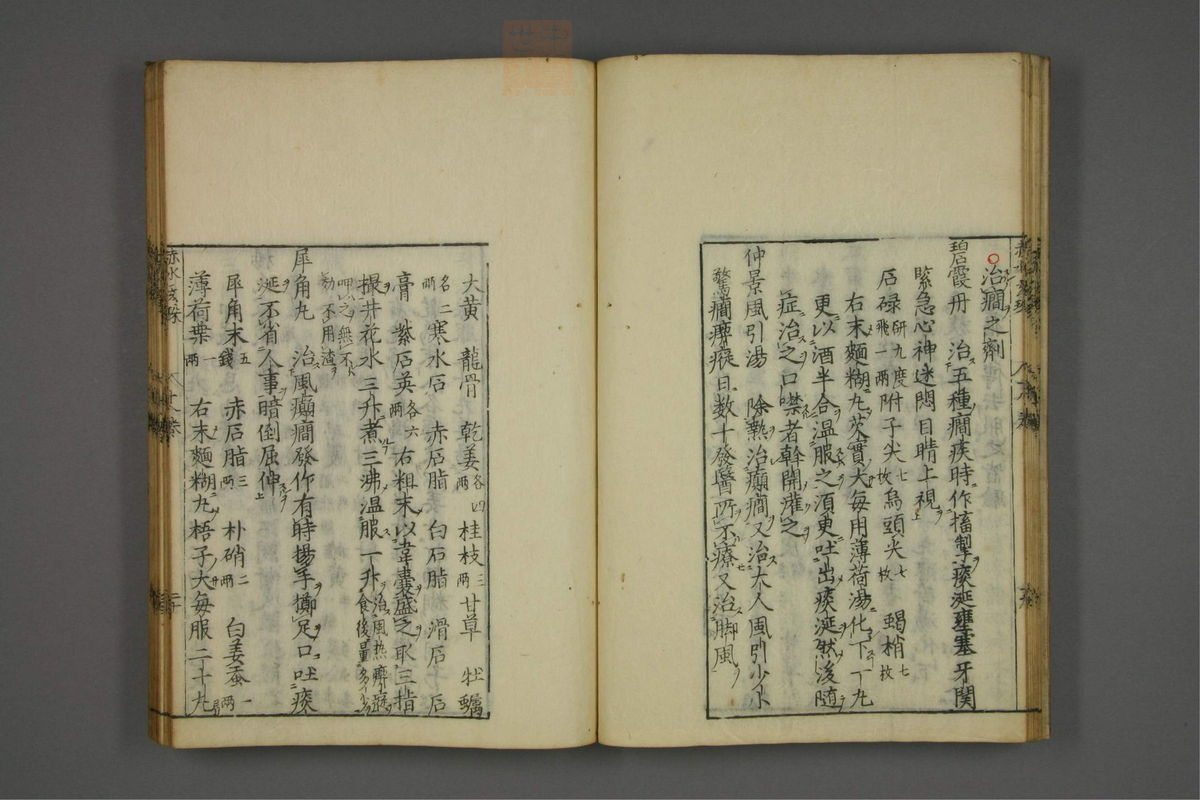 治癇之劑
碧霞丹 治五種癇疾時作搐掣痰涎壅塞牙関
緊急心神迷悶目睛上視
石碌研九度飛一兩附子尖七枚烏頭尖七枚 蝎梢七枚
右末麵糊丸芡實大每用薄荷湯化下一丸
更以酒半合温服之須更吐出痰涎然後随
症治之口噤者幹開灌之
仲景風引湯 除熱治癲癇又治大人風引少小
驚癇瘈瘲日数十發醫所不療又治脚風
大黄 龍骨 乾姜各四兩 桂枝三兩 甘草 牡蠣
各二兩 寒水石 赤石脂 白石脂 滑石 石
膏 紫石英各六兩 右粗末以韋囊盛之取三指
撮井花水三升煮三沸温服一升治風热瘈瘲食後量多少
呷之無不効不用渣
犀角丸 治風癲癇發作有時揚手擲足口吐痰
涎不省人事暗倒屈伸
犀角末五錢 赤石脂三兩 朴硝二兩 白姜蚕一兩
薄荷葉一兩 右末麵糊丸梧子大每服二十丸
赤水玄珠